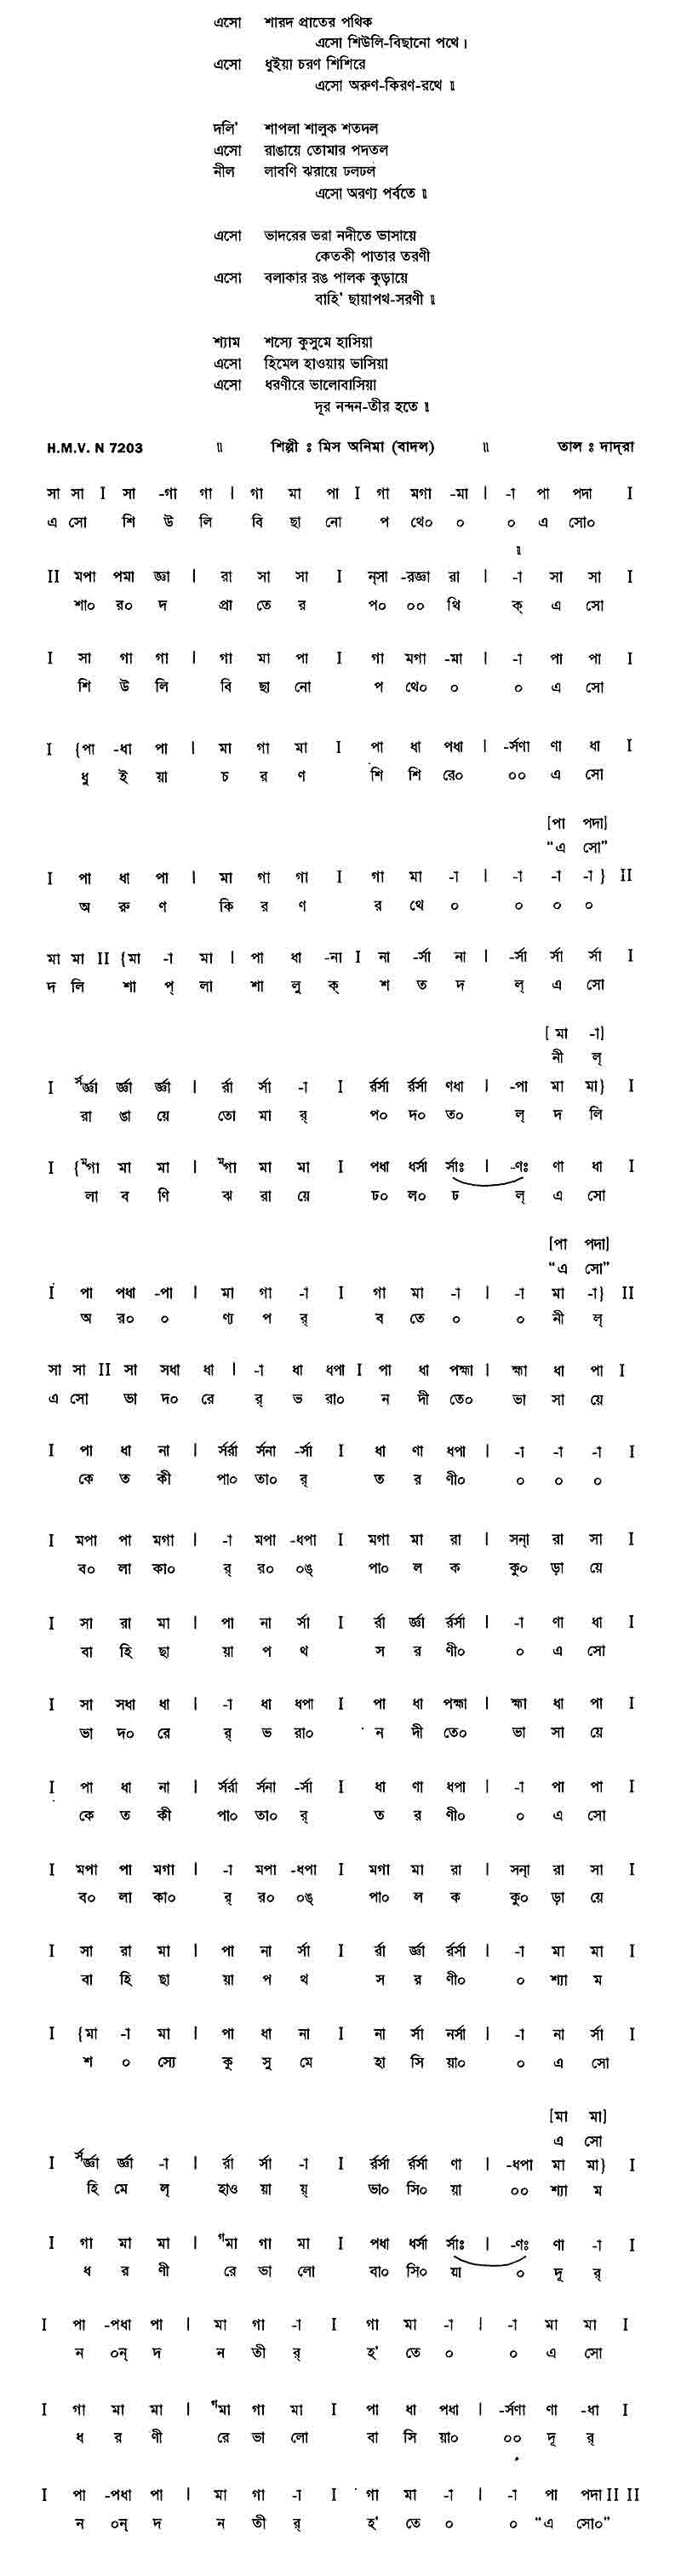 এসো শারদ প্রাতের পথিক
এসো শিউলি-বিছানো পথে।
এসো ধুইয়া চরণ শিশিরে
এসো অরুণ-কিরণ-রথে॥
দলি' শাপলা শালুক শতদল
এসো রাঙায়ে তোমার পদতল
নীল লাবণি ঝরায়ে ঢলঢল
এসো অরণ্য পর্বতে॥
এসো ভাদরের ভরা নদীতে ভাসায়ে
কেতকী পাতার তরণী
এসো বলাকার রঙ পালক কুড়ায়ে
বাহি' ছায়াপথ-সরণী॥
শ্যাম শস্যে কুসুমে হাসিয়া
এসো হিমেল হাওয়ায় ভাসিয়া
এসো ধরণীরে ভালোবাসিয়া
দূর নন্দন-তীর হতে॥
H.M.V. N 7203 ॥ শিল্পী ঃ মিস অনিমা (বাদল) ॥ তাল ঃ দাদ্‌রা
সা সা I সা -গা গা | গা মা পা I গা মগা -মা | -া পা পদা I
এ সো শি উ লি বি ছা নো প থে০ ০ ০ এ সো০
॥
II মপা পমা জ্ঞা | রা সা সা I ন্‌সা -রজ্ঞা রা | -া সা সা I
শা০ র০ দ প্রা তে র প০ ০০ থি ক্ এ সো
I সা গা গা | গা মা পা I গা মগা -মা | -া পা পা I
শি উ লি বি ছা নো প থে০ ০ ০ এ সো
I {পা -ধা পা | মা গা মা I পা ধা পধা | -র্সণা ণা ধা I
ধু ই য়া চ র ণ শি শি রে০ ০০ এ সো
[পা পদা]
“এ সো”
I পা ধা পা | মা গা গা I গা মা -া | -া -া -া } II
অ রু ণ কি র ণ র থে ০ ০ ০ ০
মা মা II {মা -া মা | পা ধা -না I না -র্সা না | -র্সা র্সা র্সা I
দ লি শা প্ লা শা লু ক্ শ ত দ ল্ এ সো
[ মা -া]
নী ল্
I র্সর্জ্ঞা র্জ্ঞা র্জ্ঞা | র্রা র্সা -া I র্রর্সা র্রর্সা ণধা | -পা মা মা} I
রা ঙা য়ে তো মা র্ প০ দ০ ত০ ল্ দ লি
I {মগা মা মা | মগা মা মা I পধা ধর্সা র্সাঃ | -ণঃ ণা ধা I
লা ব ণি ঝ রা য়ে ঢ০ ল০ ঢ ল্ এ সো
[পা পদা]
“এ সো”
I পা পধা -পা | মা গা -া I গা মা -া | -া মা -া} II
অ র০ ০ ণ্য প র্ ব তে ০ ০ নী ল্
সা সা II সা সধা ধা | -া ধা ধপা I পা ধা পহ্মা | হ্মা ধা পা I
এ সো ভা দ০ রে র্ ভ রা০ ন দী তে০ ভা সা য়ে
I পা ধা না | র্সর্রা র্সনা -র্সা I ধা ণা ধপা | -া -া -া I
কে ত কী পা০ তা০ র্ ত র ণী০ ০ ০ ০
I মপা পা মগা | -া মপা -ধপা I মগা মা রা | সন্‌া রা সা I
ব০ লা কা০ র্ র০ ০ঙ্ পা০ ল ক কু০ ড়া য়ে
I সা রা মা | পা না র্সা I র্রা র্জ্ঞা র্রর্সা | -া ণা ধা I
বা হি ছা য়া প থ স র ণী০ ০ এ সো
I সা সধা ধা | -া ধা ধপা I পা ধা পহ্মা | হ্মা ধা পা I
ভা দ০ রে র্ ভ রা০ ন দী তে০ ভা সা য়ে
I পা ধা না | র্সর্রা র্সনা -র্সা I ধা ণা ধপা | -া পা পা I
কে ত কী পা০ তা০ র্ ত র ণী০ ০ এ সো
I মপা পা মগা | -া মপা -ধপা I মগা মা রা | সন্‌া রা সা I
ব০ লা কা০ র্ র০ ০ঙ্ পা০ ল ক কু০ ড়া য়ে
I সা রা মা | পা না র্সা I র্রা র্জ্ঞা র্রর্সা | -া মা মা I
বা হি ছা য়া প থ স র ণী০ ০ শ্যা ম
I {মা -া মা | পা ধা না I না র্সা নর্সা | -া না র্সা I
শ ০ স্যে কু সু মে হা সি য়া০ ০ এ সো
[মা মা]
এ সো
I র্সর্জ্ঞা র্জ্ঞা -া | র্রা র্সা -া I র্রর্সা র্রর্সা ণা | -ধপা মা মা} I
হি মে ল্ হাও য়া য়্ ভা০ সি০ য়া ০০ শ্যা ম
I গা মা মা | গমা গা মা I পধা ধর্সা র্সাঃ | -ণঃ ণা -া I
ধ র ণী রে ভা লো বা০ সি০ য়া ০ দূ র্
I পা -পধা পা | মা গা -া I গা মা -া | -া মা মা I
ন ০ন্ দ ন তী র্ হ' তে ০ ০ এ সো
I গা মা মা | গমা গা মা I পা ধা পধা | -র্সণা ণা -ধা I
ধ র ণী রে ভা লো বা সি য়া০ ০০ দূ র্
I পা -পধা পা | মা গা -া I গা মা -া | -া পা পদা II II
ন ০ন্ দ ন তী র্ হ' তে ০ ০ “এ সো০”